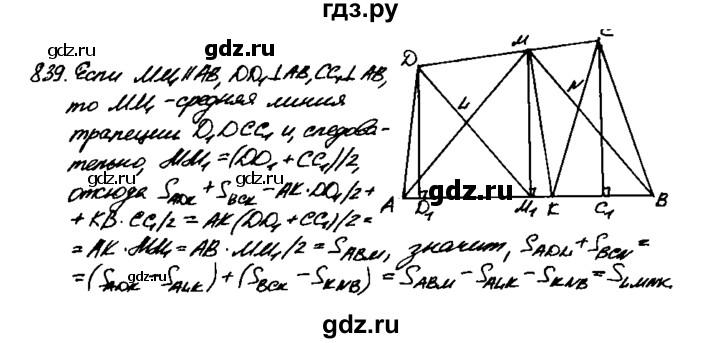 гдз.ру
gdz.ru
gdz.ru
839. Если MM₁ ∥ AB, DD₁ ⊥ AB, CC₁ ⊥ AB,
то MM₁ - средняя линия
трапеции D₁DCC₁ и, следова-
тельно, MM₁ = (DD₁ + CC₁)/2,
gdz.ru
gdz.ru
отсюда S_ADK + S_BCK - AK·DD₁/2 +
+ KB·CC₁/2 = AK(DD₁ + CC₁)/2 =
= AK·MM₁ = AB·MM₁/2 = S_ABM, значит, S_ADL + S_BCN =
gdz.ru
gdz.ru
= (S_ADK - S_ALK) + (S_BCK - S_KNB) = S_ABM - S_ALK - S_KNB = S_LMNK.
gdz.ru
D
M
C
L
N
A
D₁
M₁
K
C₁
B